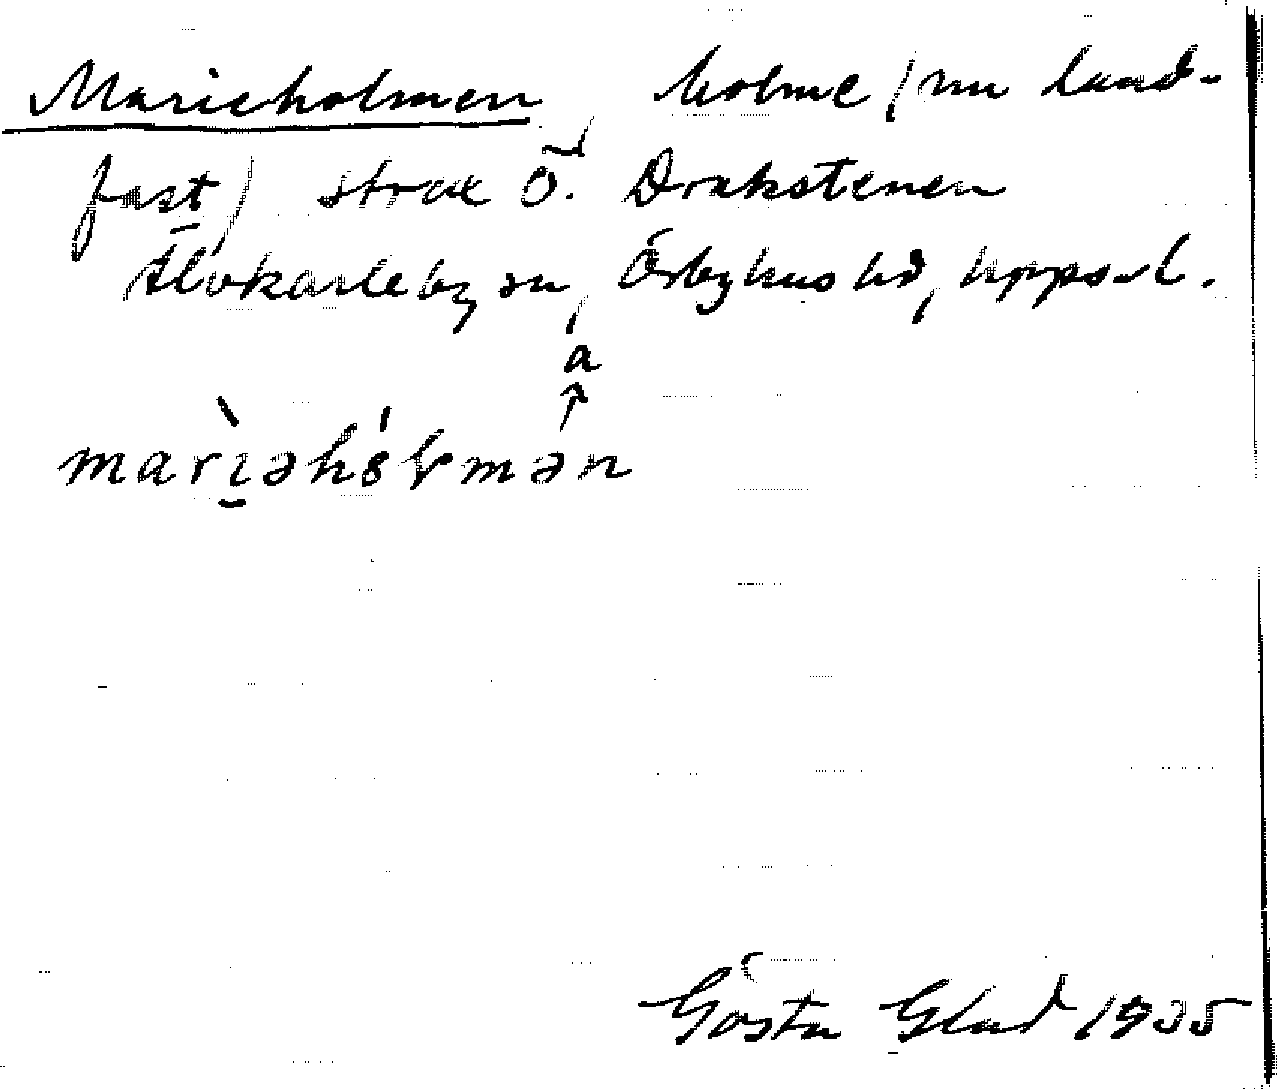 Marieholmen, holme (nu land-
fast) strax Ö. Drakstenen
Älvkarleby sn, Örbyhus hd, Uppsal.
a
↑
marìəhólmən
Gösta Glad 1935